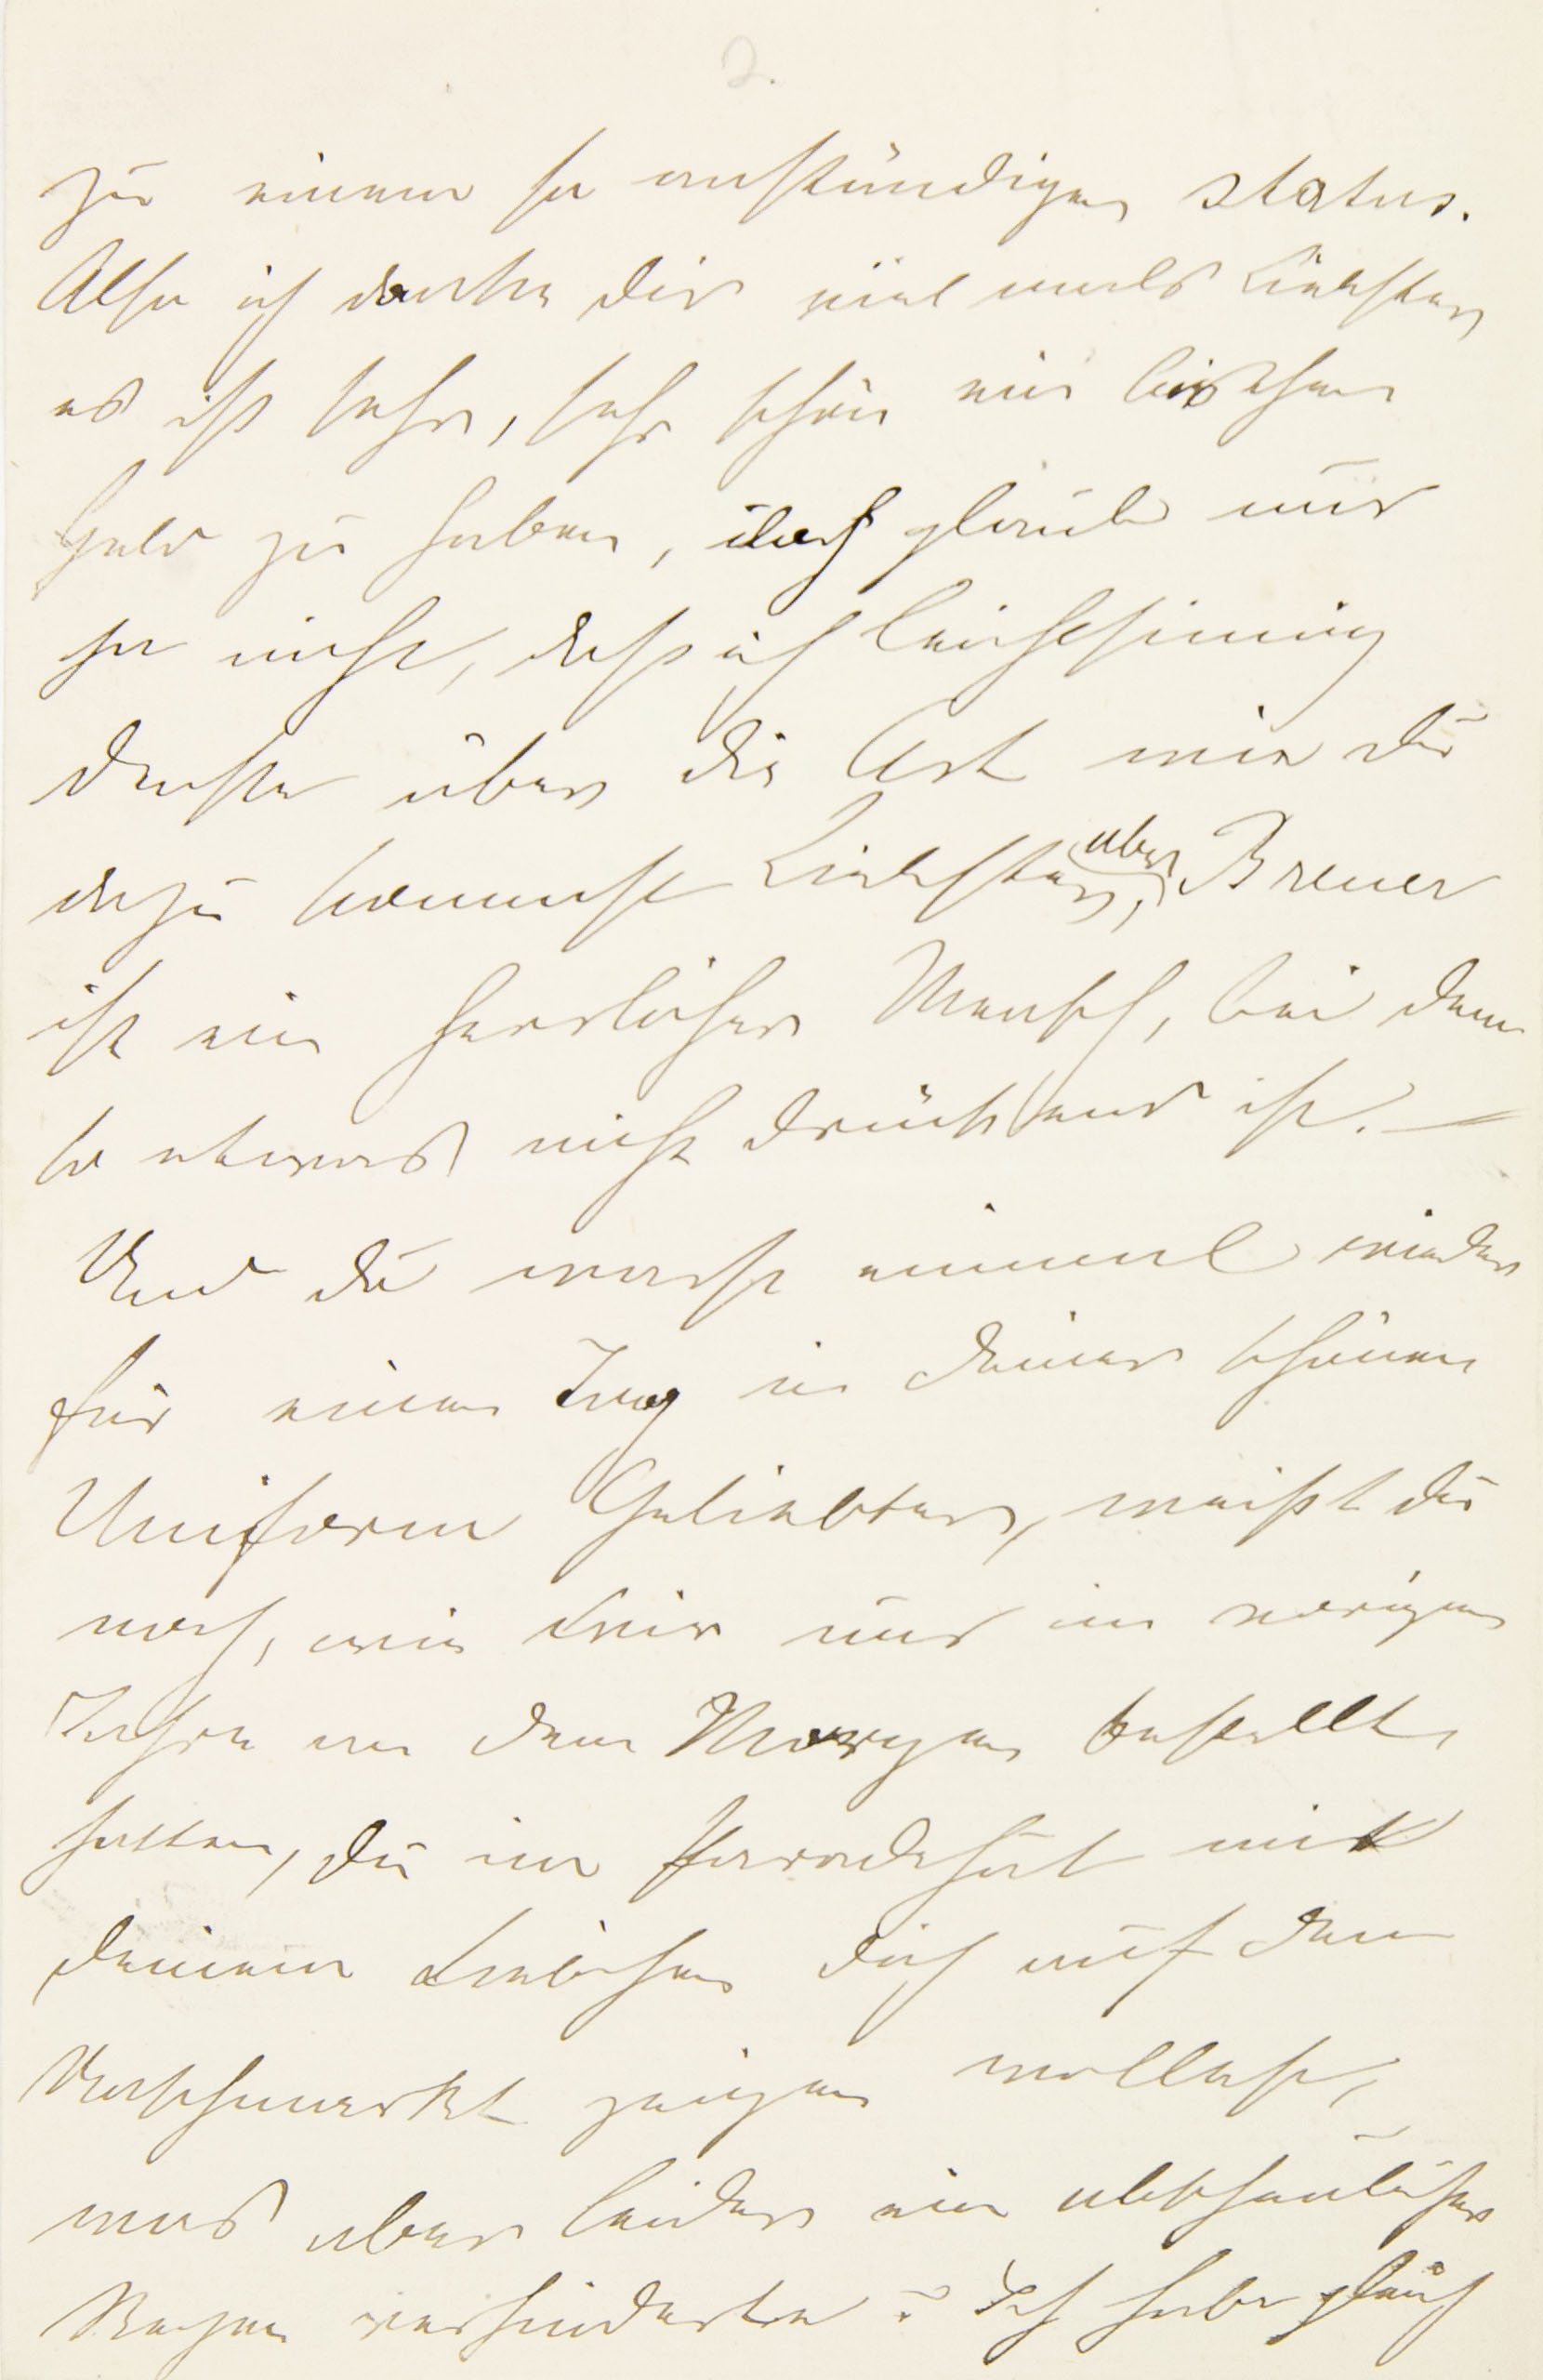 2.
zu einem so anständigen status.
Also ich danke dir viel mals Liebster,
es ist sehr, sehr schön ein bischen
Geld zu haben, doch glaub nur
ja nicht, daß ich leichtsinnig
denke über die Art wie du
dazu kommst Liebster, aber Breuer
ist ein herrlicher Mensch, bei dem
so etwas nicht drückend ist. —
Und du warst einmal wieder
für einen Tag in deiner schönen
Uniform Geliebter, weißt du
noch, wie wir uns im vorigen
Jahre an dem Morgen bestellt
hatten, du im Paradehut mit
deinem Liebchen dich auf dem
Naschmarkt zeigen wolltest,
was aber leider ein abscheulicher
Regen verhinderte? Ich habe gleich